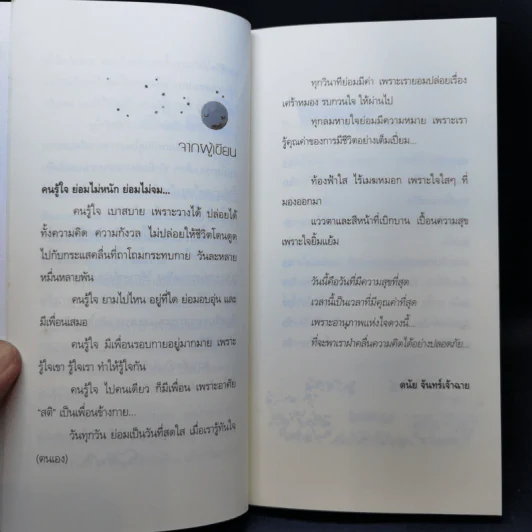 จากผู้เขียน
คนรู้ใจ ย่อมไม่หนัก ย่อมไม่จม...
คนรู้ใจ เบาสบาย เพราะวางได้ ปล่อยได้
ทั้งความคิด ความกังวล ไม่ปล่อยให้ชีวิตโดนดูด
ไปกับกระแสคลื่นที่ถาโถมกระทบกาย วันละหลาย
หมื่นหลายพัน
คนรู้ใจ ยามไปไหน อยู่ที่ใด ย่อมอบอุ่น และ
มีเพื่อนเสมอ
คนรู้ใจ มีเพื่อนรอบกายอยู่มากมาย เพราะ
รู้ใจเขา รู้ใจเรา ทำให้รู้ใจกัน
คนรู้ใจ ไปคนเดียว ก็มีเพื่อน เพราะอาศัย
"สติ" เป็นเพื่อนข้างกาย...
วันทุกวัน ย่อมเป็นวันที่สดใส เมื่อเรารู้ทันใจ
(ตนเอง)
ทุกวินาทีย่อมมีค่า เพราะเรายอมปล่อยเรื่อง
เศร้าหมอง รบกวนใจ ให้ผ่านไป
ทุกลมหายใจย่อมมีความหมาย เพราะเรา
รู้คุณค่าของการมีชีวิตอย่างเต็มเปี่ยม...
ท้องฟ้าใส ไร้เมฆหมอก เพราะใจใสๆ ที่
มองออกมา
แววตาและสีหน้าที่เบิกบาน เปื้อนความสุข
เพราะใจยิ้มแย้ม
วันนี้คือวันที่มีความสุขที่สุด
เวลานี้เป็นเวลาที่มีคุณค่าที่สุด
เพราะอานุภาพแห่งใจดวงนี้...
ที่จะพาเราฝ่าคลื่นความคิดได้อย่างปลอดภัย...
ดนัย จันทร์เจ้าฉาย